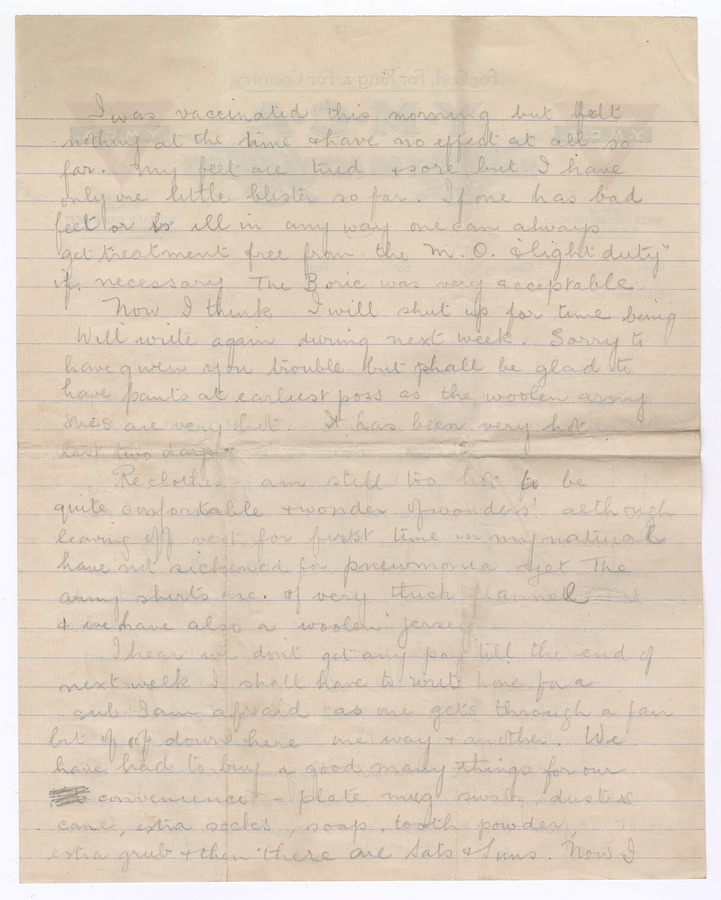 I was vaccinated this morning but felt
nothing at the time & have no effect at all so
far. My feet are tired & sore but I have
only one little blister so far. If one has bad
feet or is ill in any way one can always
get treatment free from the M.O. & "light duty"
if necessary. The Boric was very acceptable.
Now I think I will shut up for time being
Will write again during next week. Sorry to
have given you trouble but shall be glad to
have pants at earliest poss as the woolen army
ones are very hot. It has been very hot
last two days.
Re clothes - am still too hot to be
quite comfortable & wonder of wonders! although
leaving off vest for first time in my natural
have not sickened for pneumonia yet. The
army shirts are of very thick flannel
& we have also a woolen jersey.
I hear we don't get any pay till the end of
next week. I shall have to write home for a
sub I am afraid as one gets through a fair
bit of down here one way & another. We
have had to buy a good many things for our
convenience - plate mug swabs, dusters
cane, extra socks, soap, tooth powder,
extra grub & then there are Sats & Suns. Now I
For God, For King & For Country.
Y.M.C.A.